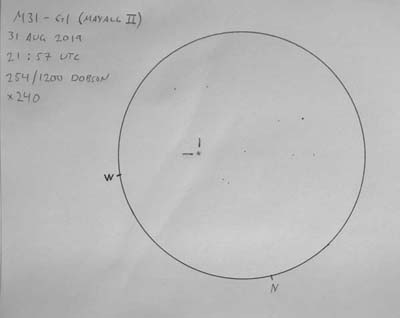 M31 - G1 (MAYALL II)
31 AUG 2019
21:57 UTC
254/1200 DOBSON
×240
W
N